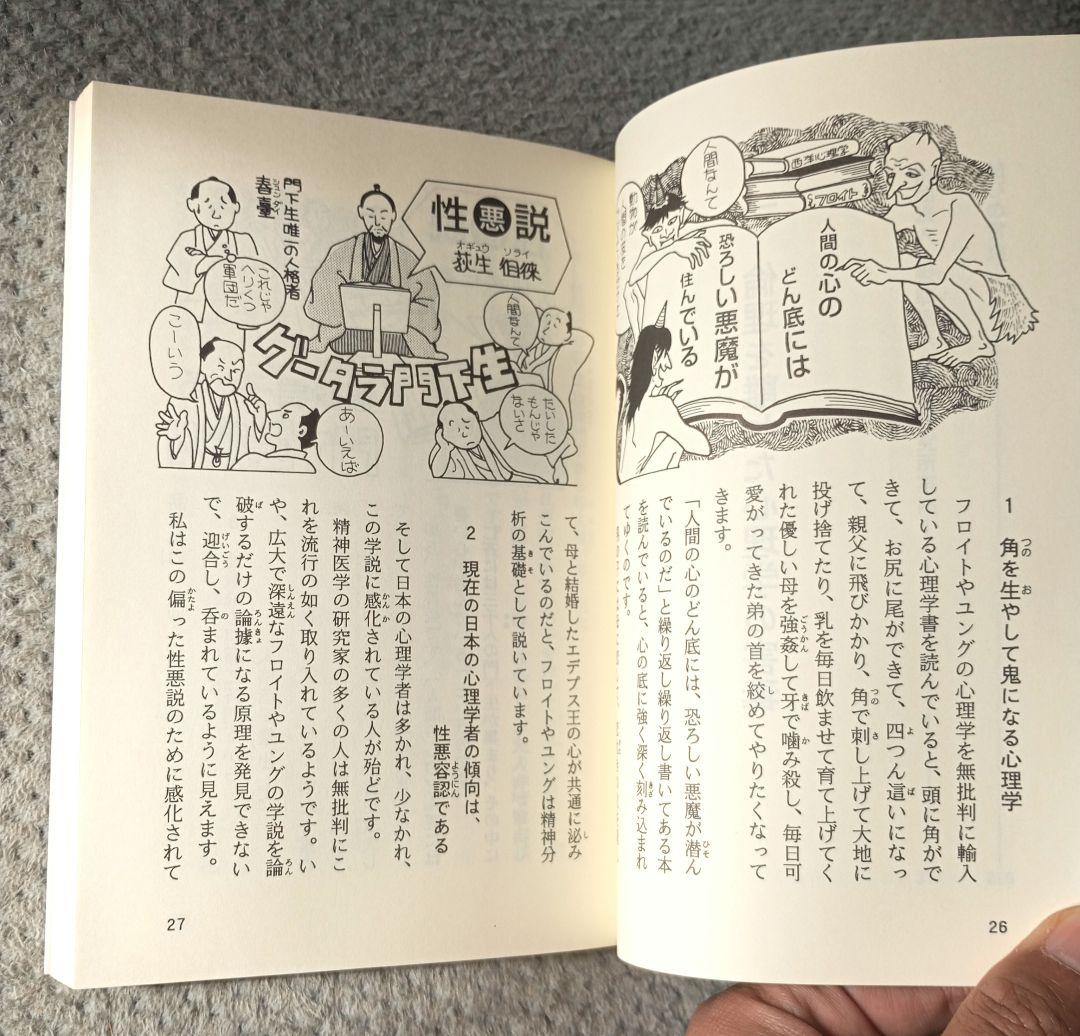 人間なんて
西洋心理学
フロイト
動物が
人間の心の
どん底には
恐ろしい悪魔が
住んでいる
1 角を生やして鬼になる心理学
フロイトやユングの心理学を無批判に輸入
している心理学書を読んでいると、頭に角がで
きて、お尻に尾ができて、四つん這いになっ
て、親父に飛びかかり、角で刺し上げて大地に
投げ捨てたり、乳を毎日飲ませて育て上げてく
れた優しい母を強姦して牙で噛み殺し、毎日可
愛がってきた弟の首を絞めてやりたくなって
きます。
「人間の心のどん底には、恐ろしい悪魔が潜ん
でいるのだ」と繰り返し繰り返し書いてある本
を読んでいると、心の底に強く深く刻み込まれ
てゆくのです。
26
性悪説
オギュウ ソライ
荻生徂徠
門下生唯一の人格者
シュンダイ
春臺
これじゃ
へりくつ
軍団だ
人間なんて
たいした
もんじゃ
ないさ
グータラ門下生
こーいう
あーいえば
て、母と結婚したエデプス王の心が共通に泌み
こんでいるのだと、フロイトやユングは精神分
析の基礎として説いています。
2 現在の日本の心理学者の傾向は、
性悪容認である
そして日本の心理学者は多かれ、少なかれ、
この学説に感化されている人が殆どです。
精神医学の研究家の多くの人は無批判にこ
れを流行の如く取り入れているようです。い
や、広大で深遠なフロイトやユングの学説を論
破するだけの論據になる原理を発見できない
で、迎合し、呑まれているように見えます。
私はこの偏った性悪説のために感化されて
27